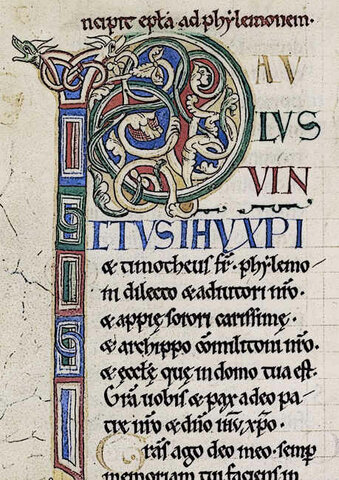 ncipit epła ad phylemonem.
PAV
LVS
VIN
CTVS IHV XPI
& timotheus fr̄. phylemo
ni dilecto & adiutori nr̄o.
& appię sorori carissimę.
& archippo cōmilitoni nr̄o.
& ęcclę quę in domo tua est.
Gr̄a uobis & pax a deo pa
tre nr̄o & dn̄o ihū xp̄o.
Gr̄as ago deo meo semp̄
memoriam tui faciens in